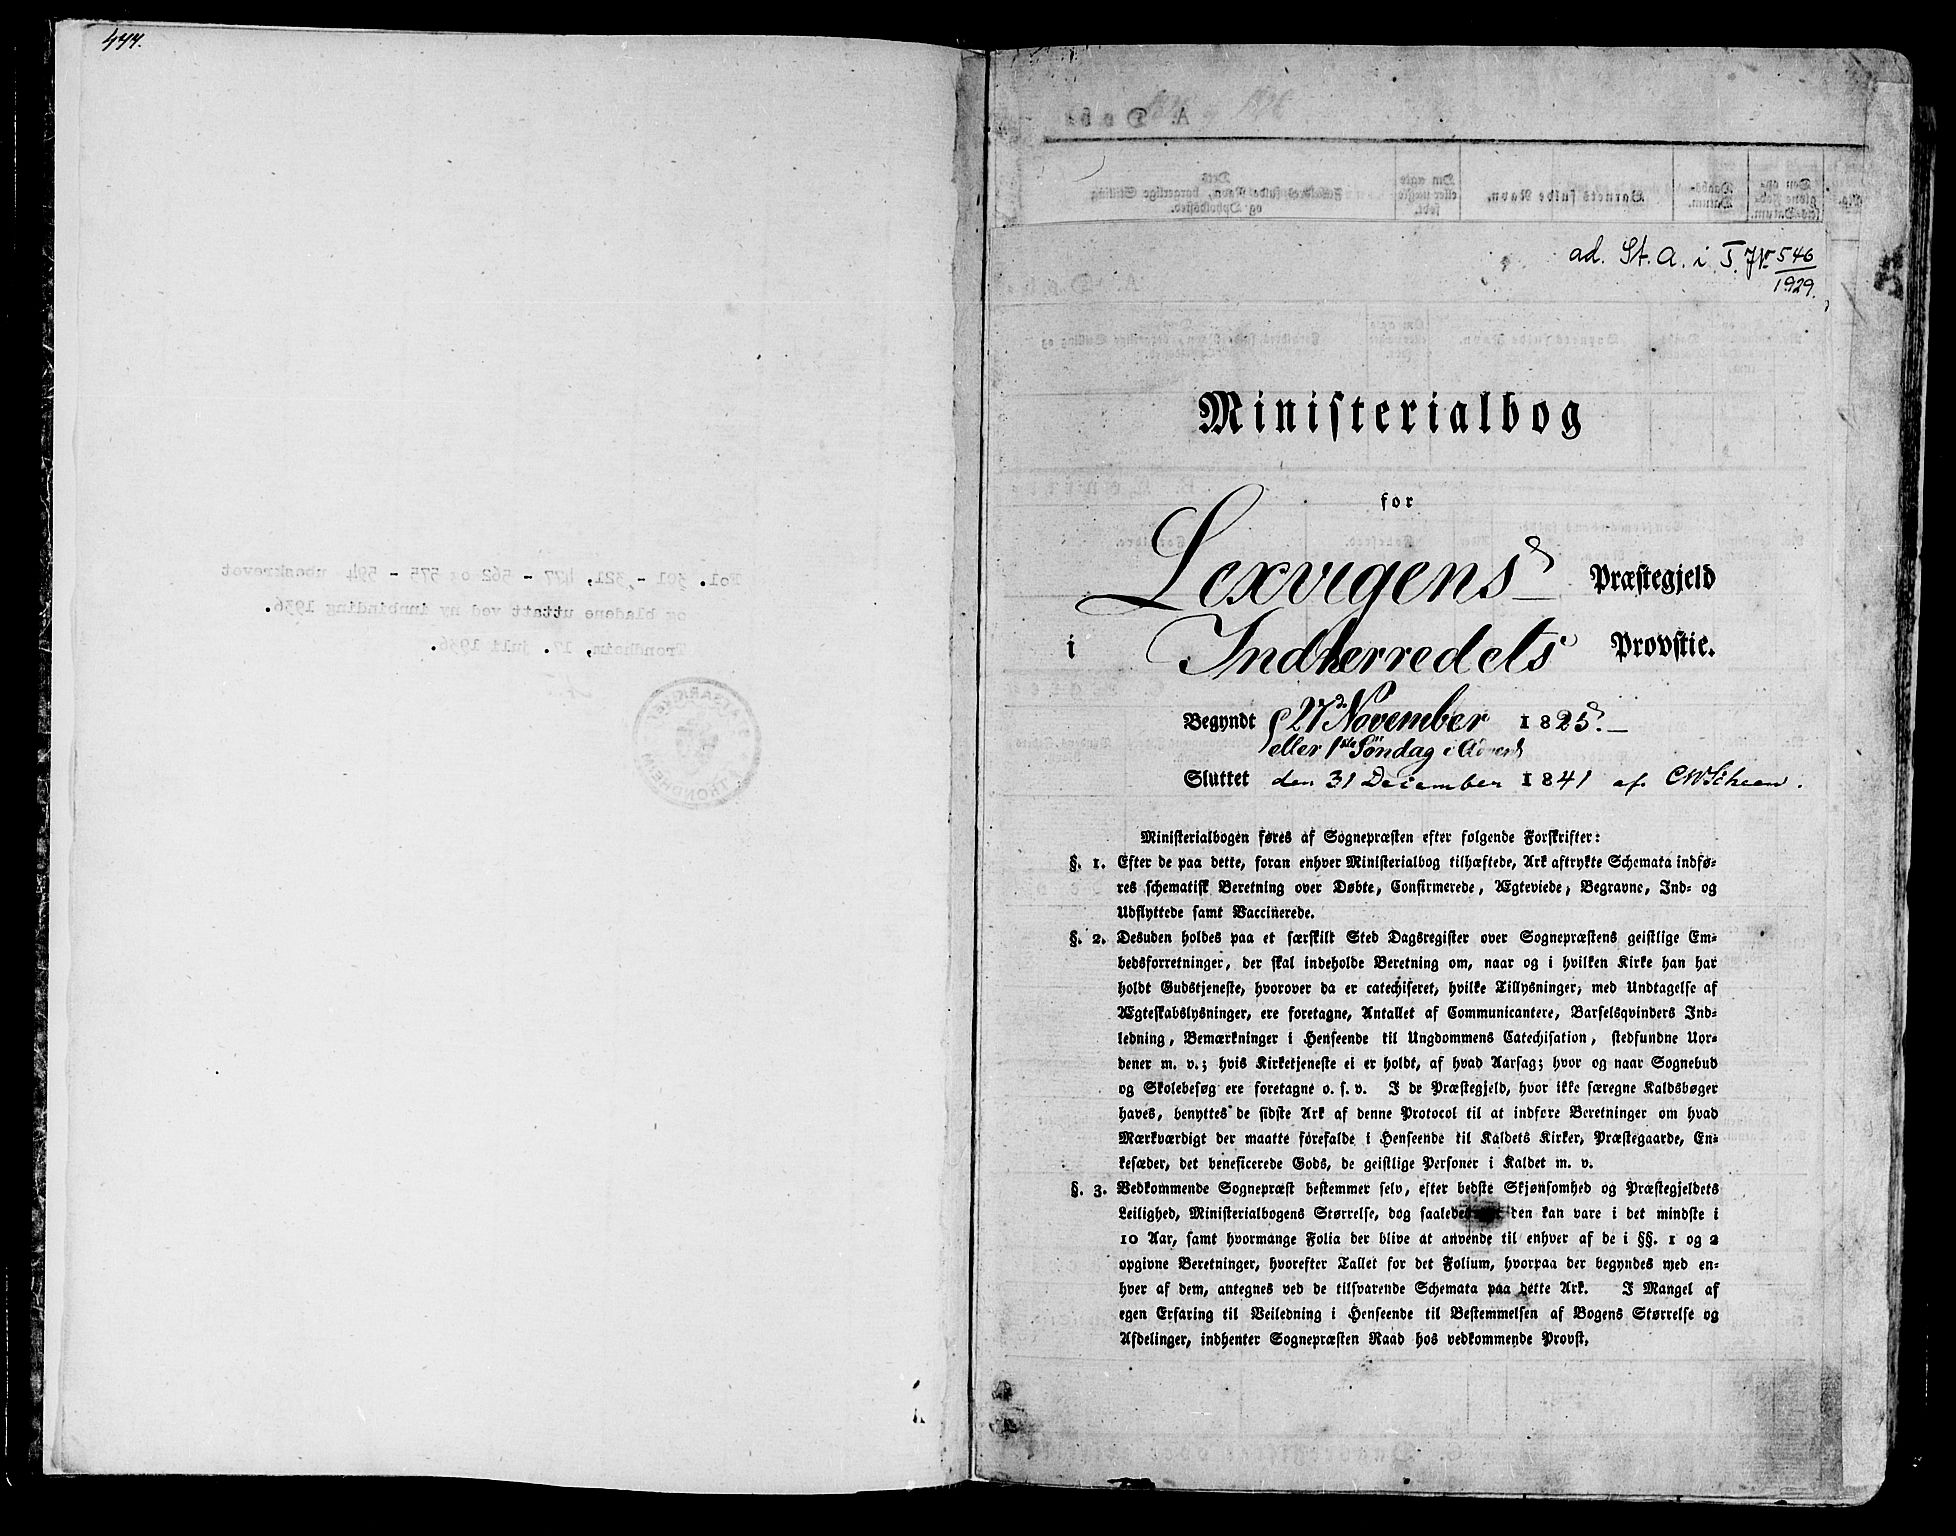 477.
Fol. 301 - 321, 477 - 562 og 575 - 594 ubeskrevet
og bladene uttatt ved ny innbinding 1936.
Trondheim, 17. juli 1936.
STATSARKIVET
TRONDHEIM
A. Døbte
ad. St. A. i T. JN 546
1929.
Ministerialbog
for
Lexvigens Præstegjeld
i Indherredets Provstie.
Begyndt 27de November 1825.
eller 1ste Söndag i Advent
Sluttet den 31 December 1841 af CWScheen.
Ministerialbogen føres af Sognepræsten efter følgende Forskrifter:
§. 1. Efter de paa dette, foran enhver Ministerialbog tilhæftede, Ark aftrykte Schemata indfø-
res schematisk Beretning over Døbte, Confirmerede, Ægteviede, Begravne, Ind- og
Udflyttede samt Vaccinerede.
§. 2. Desuden holdes paa et særskilt Sted Dagsregister over Sognepræstens geistlige Em-
bedsforretninger, der skal indeholde Beretning om, naar og i hvilken Kirke han har
holdt Gudstjeneste, hvorover da er catechiseret, hvilke Tillysninger, med Undtagelse af
Ægteskabslysninger, ere foretagne, Antallet af Communicantere, Barselsqvinders Ind-
ledning, Bemærkninger i Henseende til Ungdommens Catechisation, stedfundne Uor-
dener m. v.; hvis Kirketjeneste ei er holdt, af hvad Aarsag; hvor og naar Sognebud
og Skolebesøg ere foretagne o. s. v. I de Præstegjeld, hvor ikke særegne Kaldsbøger
haves, benyttes de sidste Ark af denne Protocol til at indføre Beretninger om hvad
Mærkværdigt der maatte forefalde i Henseende til Kaldets Kirker, Præstegaarde, En-
kesæder, det beneficerede Gods, de geistlige Personer i Kaldet m. v.
§. 3. Vedkommende Sognepræst bestemmer selv, efter bedste Skjønsomhed og Præstegjeldets
Leilighed, Ministerialbogens Størrelse, dog saaledes at den kan vare i det mindste i
10 Aar, samt hvormange Folia der blive at anvende til enhver af de i §§. 1 og 2
opgivne Beretninger, hvorefter Tallet for det Folium, hvorpaa der begyndes med en-
hver af dem, antegnes ved de tilsvarende Schemata paa dette Ark. I Mangel af
egen Erfaring til Veiledning i Henseende til Bestemmelsen af Bogens Størrelse og
Afdelinger, indhenter Sognepræsten Raad hos vedkommende Provst.